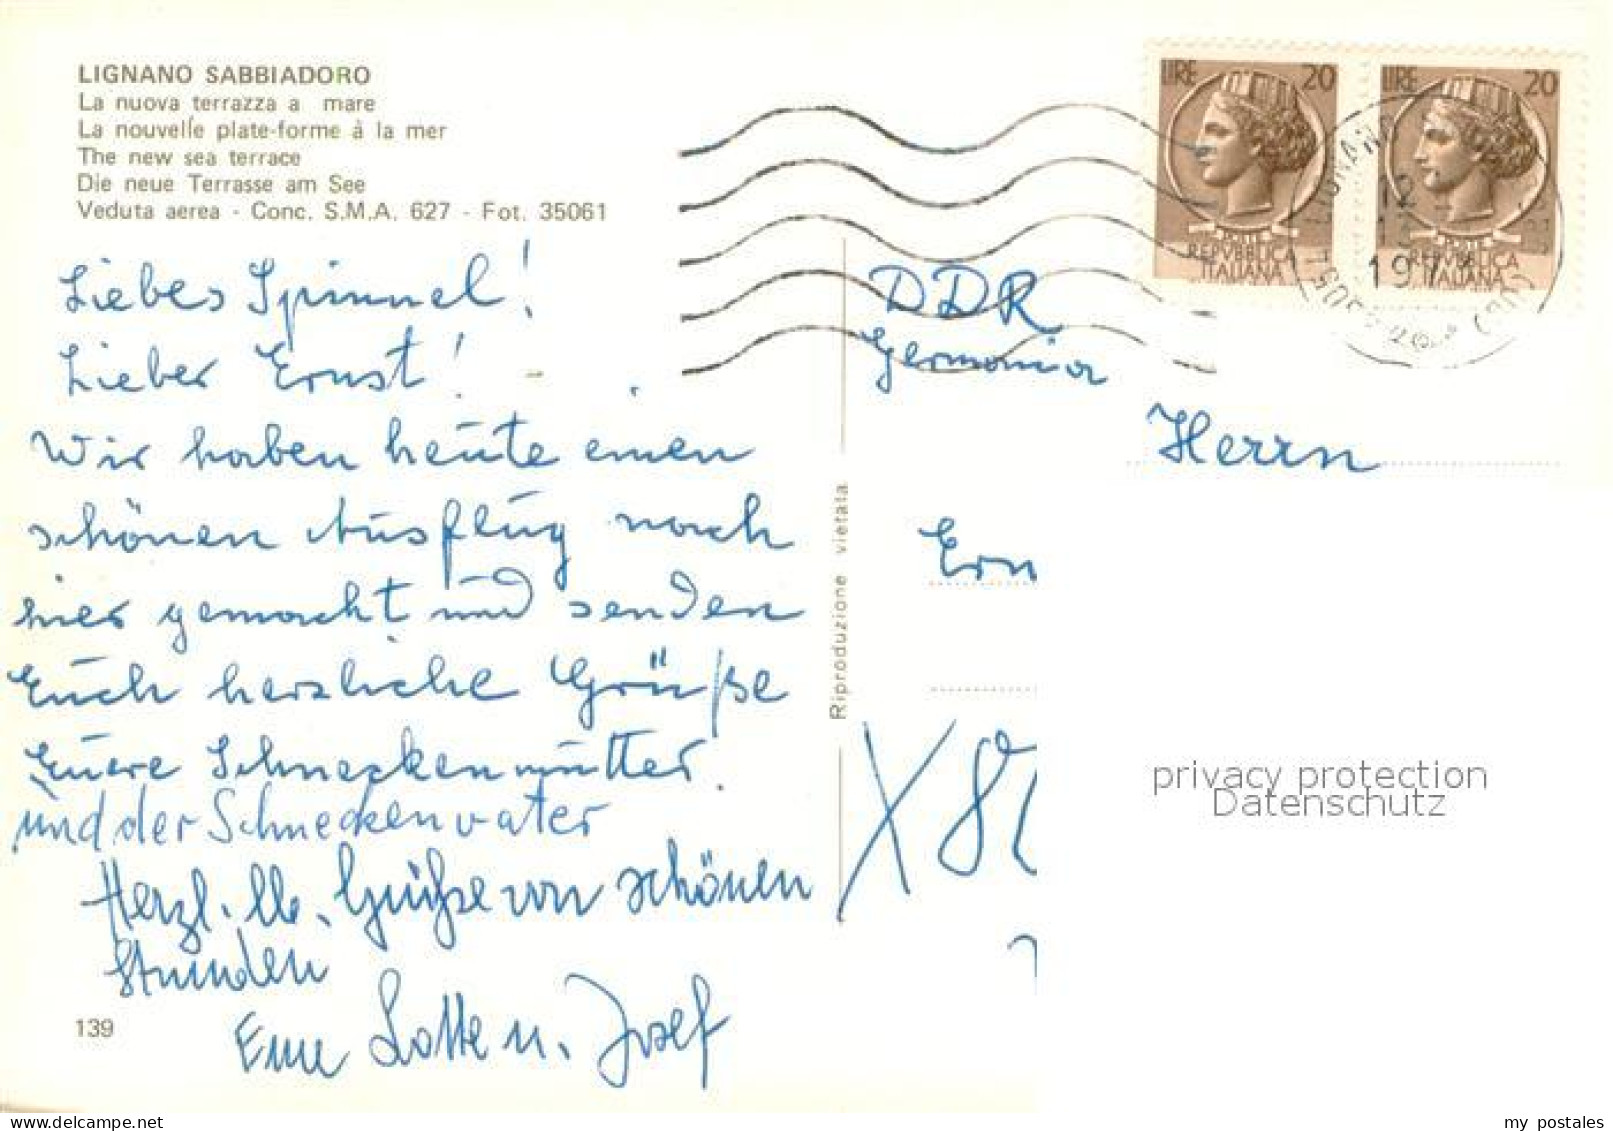 LIGNANO SABBIADORO
La nuova terrazza a mare
La nouvelle plate-forme à la mer
The new sea terrace
Die neue Terrasse am See
Veduta aerea - Conc. S.M.A. 627 - Fot. 35061
Liebes Spinnel!
Lieber Ernst!
Wir haben heute einen
schönen Ausflug nach
hier gemacht und senden
Euch herzliche Grüße
Euere Schneckenmutter.
und der Schneckenvater
Herzl. lb. Grüße von schönen
Stunden
Eure Lotte u. Josef
139
Riproduzione vietata
LIRE 20
POSTE
REPVBBLICA
ITALIANA
LIRE 20
POSTE
REPVBBLICA
ITALIANA
LIGNANO
12
197
(UD)
DDR
Germania
Herrn
Ern
X
privacy protection
Datenschutz
my postales